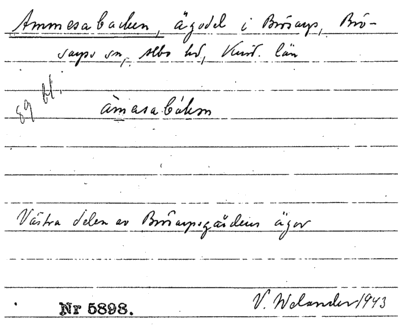 Ammesabacken, ägodel i Brösarp, Brö-
sarps sn, Albo hd, Krist. län
89 bl.
àmasabákən
Västra delen av Brösarpsgårdens ägor
Nr 5898.
V. Welander 1943